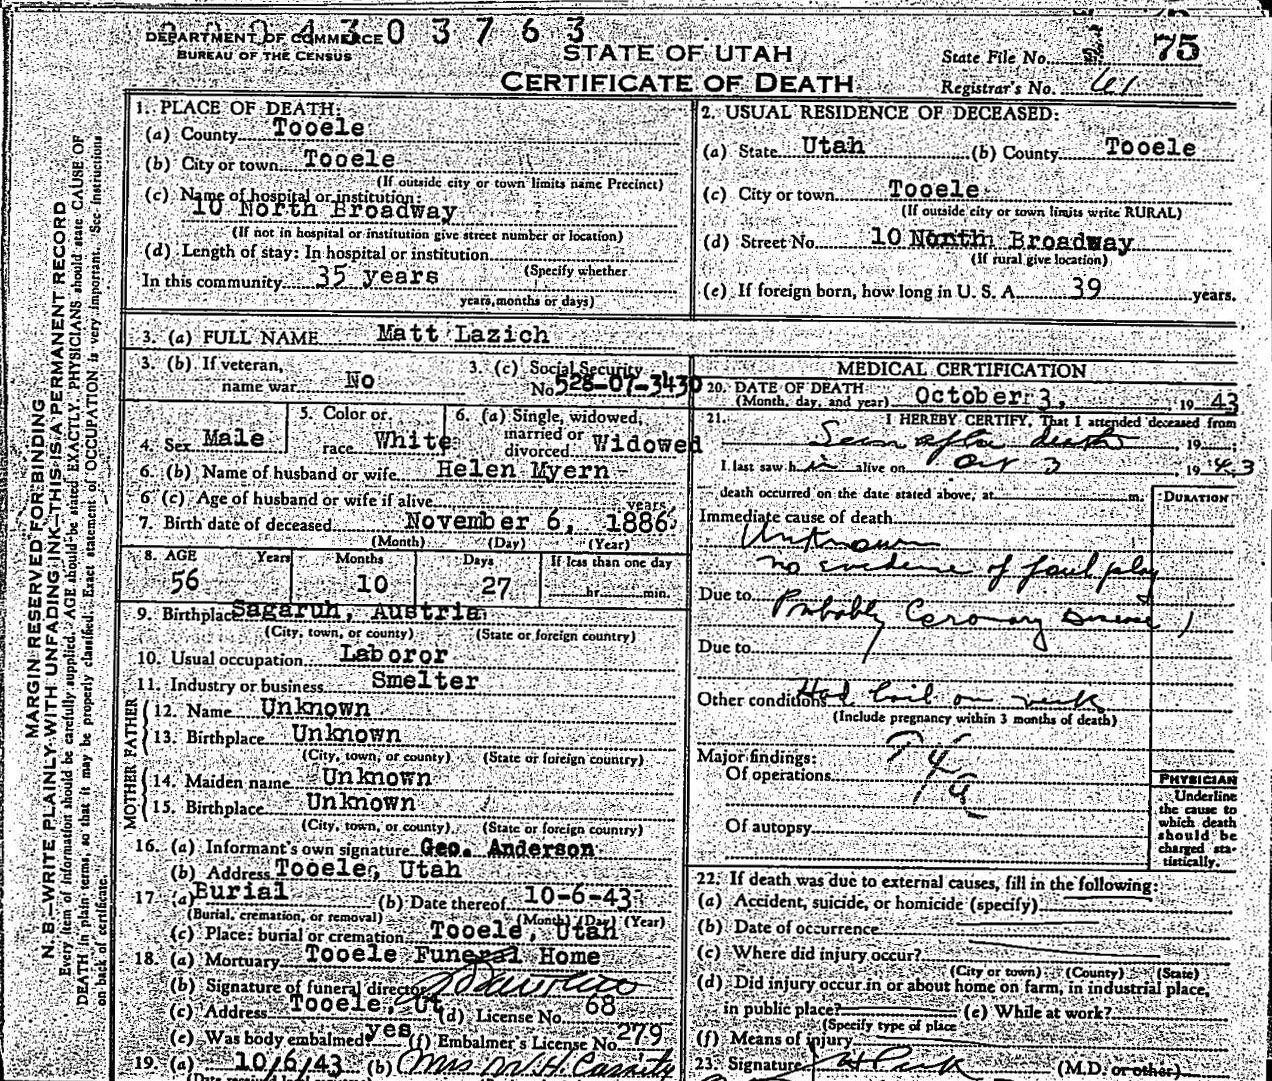 0 4 3 0 3 7 6 3
DEPARTMENT OF COMMERCE
BUREAU OF THE CENSUS
STATE OF UTAH
CERTIFICATE OF DEATH
State File No. 75
Registrar's No. 61
MARGIN RESERVED FOR BINDING
N. B.—WRITE PLAINLY WITH UNFADING INK—THIS IS A PERMANENT RECORD
Every item of information should be carefully supplied. AGE should be stated EXACTLY. PHYSICIANS should state CAUSE OF
DEATH in plain terms, so that it may be properly classified. Exact statement of OCCUPATION is very important. See instructions
on back of certificate.
1. PLACE OF DEATH:
(a) County Tooele
(b) City or town Tooele
(If outside city or town limits name Precinct)
(c) Name of hospital or institution:
10 North Broadway
(If not in hospital or institution give street number or location)
(d) Length of stay: In hospital or institution
(Specify whether
In this community 35 years
years, months or days)
2. USUAL RESIDENCE OF DECEASED:
(a) State Utah (b) County Tooele
(c) City or town Tooele
(If outside city or town limits write RURAL)
(d) Street No. 10 North Broadway
(If rural give location)
(e) If foreign born, how long in U. S. A. 39 years.
3. (a) FULL NAME Matt Lazich
3. (b) If veteran,
name war No
3. (c) Social Security
No. 528-07-3430
4. Sex Male
5. Color or
race White
6. (a) Single, widowed,
married or
divorced Widowed
6. (b) Name of husband or wife Helen Myern
6 (c) Age of husband or wife if alive years
7. Birth date of deceased November 6, 1886
(Month) (Day) (Year)
8. AGE Years Months Days If less than one day
56 10 27 hr. min.
9. Birthplace Sagaruh, Austria
(City, town, or county) (State or foreign country)
10. Usual occupation Laboror
11. Industry or business Smelter
FATHER
12. Name Unknown
13. Birthplace Unknown
(City, town, or county) (State or foreign country)
MOTHER
14. Maiden name Unknown
15. Birthplace Unknown
(City, town, or county) (State or foreign country)
16. (a) Informant's own signature Geo. Anderson
(b) Address Tooele, Utah
17. (a) Burial (b) Date thereof 10-6-43
(Burial, cremation, or removal) (Month) (Day) (Year)
(c) Place: burial or cremation Tooele, Utah
18. (a) Mortuary Tooele Funeral Home
(b) Signature of funeral director
(c) Address Tooele, Ut (d) License No. 68
(e) Was body embalmed yes (f) Embalmer's License No. 279
19. (a) 10/6/43 (b) Mrs W. H. Cassity
MEDICAL CERTIFICATION
20. DATE OF DEATH
(Month, day, and year) October 3, 1943
21. I HEREBY CERTIFY, That I attended deceased from
Seen after death 19
I last saw him alive on Oct 3 1943
death occurred on the date stated above, at m.
DURATION
Immediate cause of death
Unknown
no evidence of foul play
Due to Probably Coronary Disease
Due to
Other conditions Had boil on neck
(Include pregnancy within 3 months of death)
Major findings:
Of operations
Of autopsy
PHYSICIAN
Underline
the cause to
which death
should be
charged sta-
tistically.
22. If death was due to external causes, fill in the following:
(a) Accident, suicide, or homicide (specify)
(b) Date of occurrence
(c) Where did injury occur?
(City or town) (County) (State)
(d) Did injury occur in or about home on farm, in industrial place,
in public place? (e) While at work?
(Specify type of place
(f) Means of injury
23. Signature (M.D. or other)